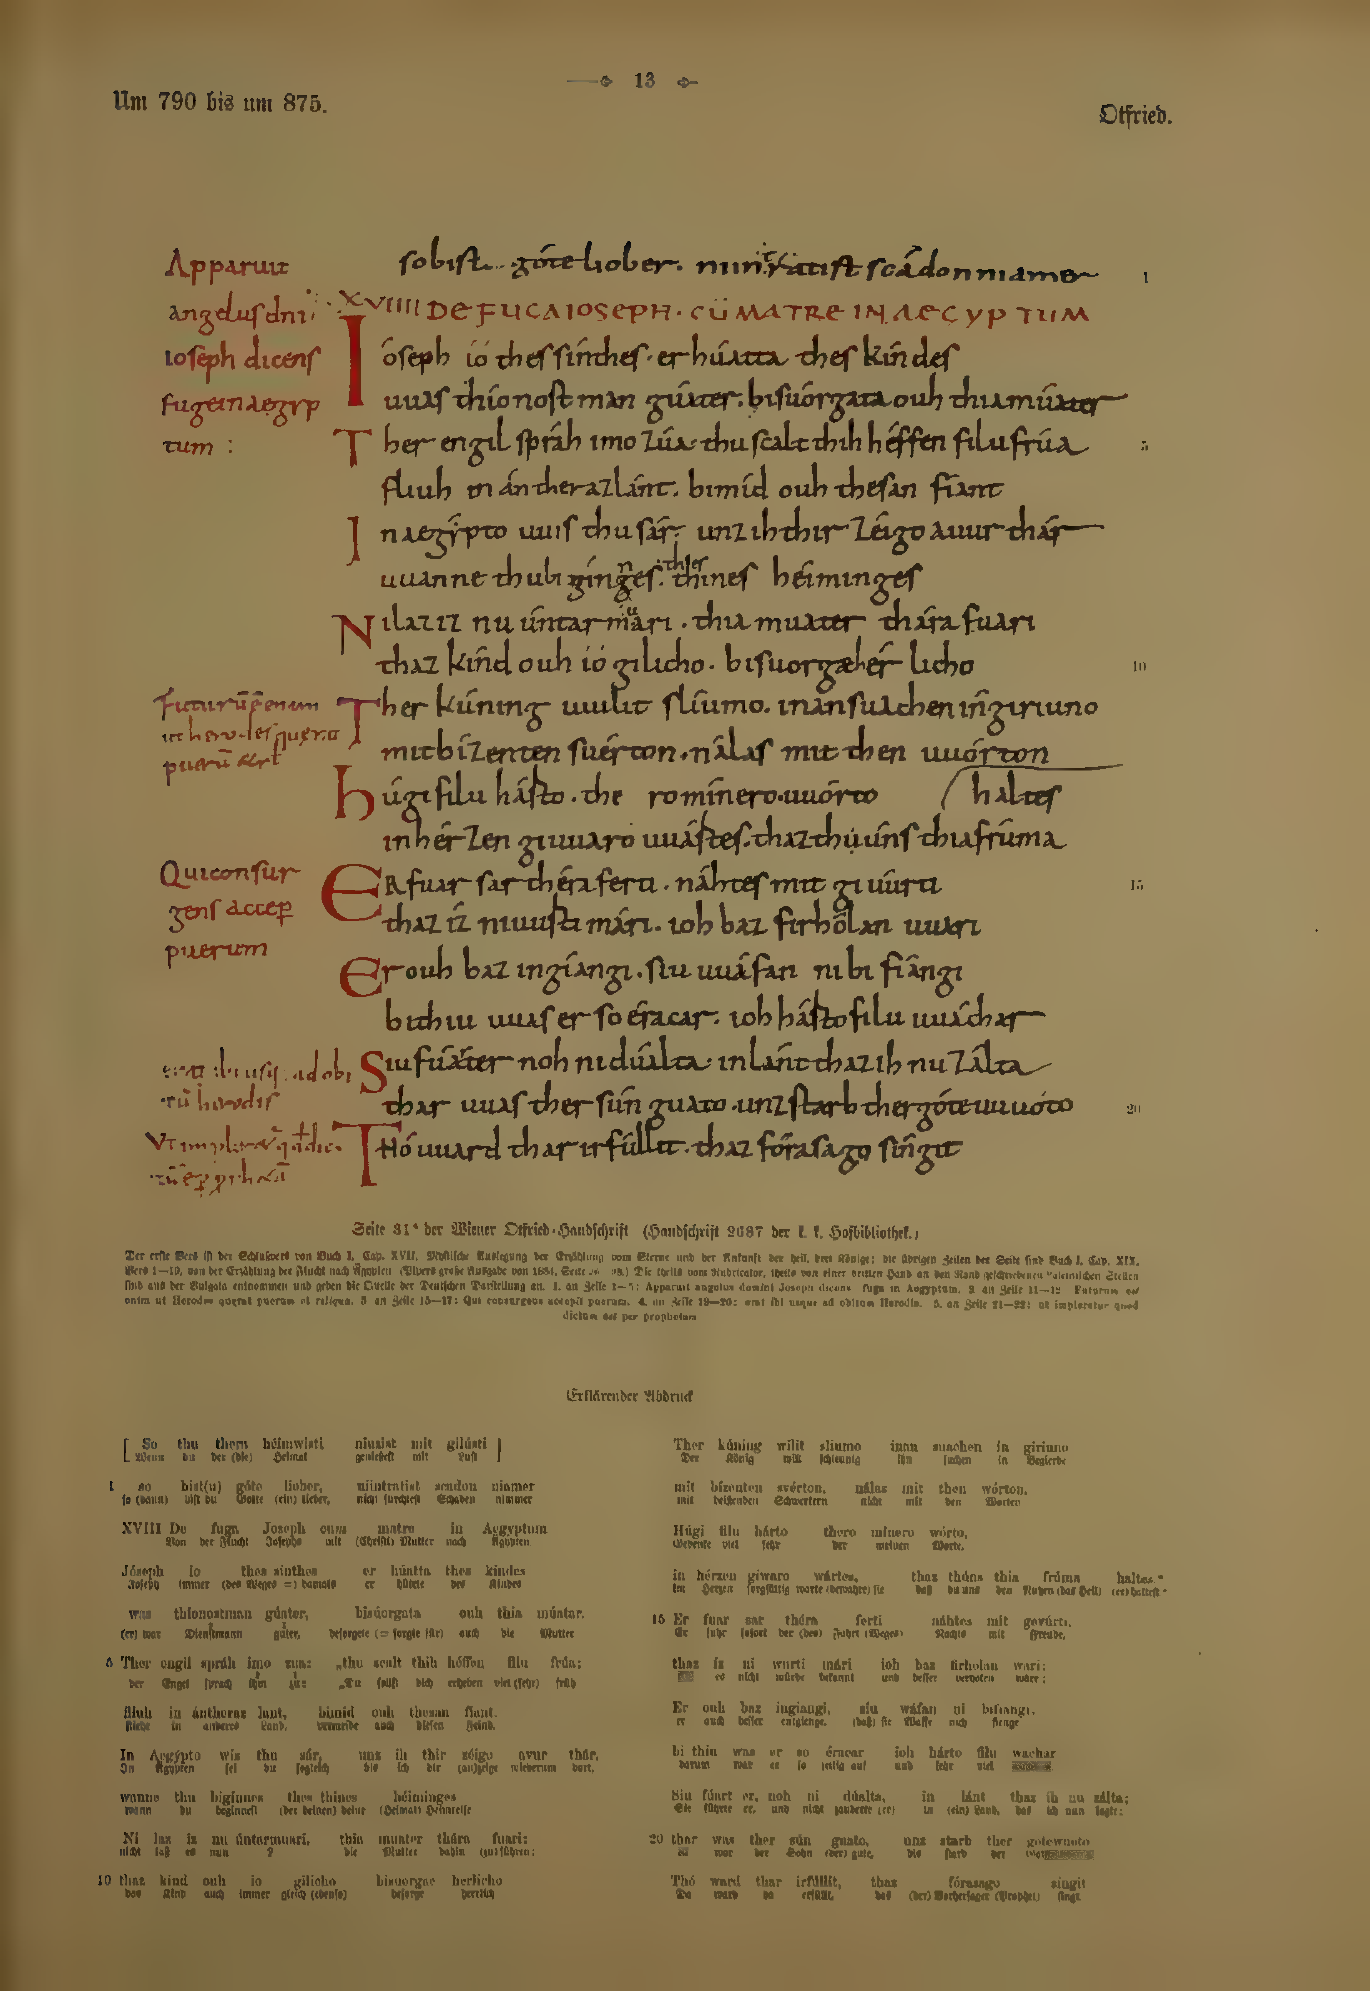 13
Um 790 bis um 875.
Otfried.
Apparuit
angelus dni
Ioseph dicens
fuge in aegyp
tum :
so bist. góte liober. scádon niamer 1
XVIIII DE FUGA IOSEPH. CŪ MATRE IN AECYPTUM
Ióseph ió thes sínthes. er húatta thes kindes
uuas thíonost man gúater. bisuórgata ouh thia múater
Ther engil spráh imo zúa. thu scalt thih héffen filu frúa 5
fliuh in ántheraz lánt. bimíd ouh thesan fíant
In aegýpto uuis thu sár. unz ih thir zéigo auur thár
uuanne thu bigínnes. thes thínes héiminges
Ni laz iz nu úntarmuari. thia muater thára fuari
thaz kínd ouh ió gilicho. bisuorge hérlicho 10
Futurū ē enim
ut herodes querat
puerū &rł
Ther kúning uuilit slíumo. inan suachen in giriuno
mit bízenten suérton. nálas mit then uuórton
húgi filu hárto. thero mínero uuórto haltes
in hérzen giuuaro uuártes. thaz thu úns thia frúma
Qui consur
gens accep
puerum
ER fuar sar théra ferti. náhtes mit giuúrti 15
thaz íz ni uuurti mári. ioh baz firhólan uuari
Er ouh baz ingíangi. siu uuáfan ni bifíangi
bithiu uuas er so éracar. ioh hárto filu uuáchar
Siu fúart er noh ni duálta. in lánt thaz ih nu zálta
thar uuas ther sún guato. unz starb ther góteuuuoto 20
Thó uuard thar irfúllit. thaz fórasago síngit
Seite 31ᵃ der Wiener Otfried-Handschrift (Handschrift 2687 der k. k. Hofbibliothek.)
Der erste Vers ist der Schlußvers von Buch I, Cap. XVII, Mystische Auslegung der Erzählung vom Sterne und der Ankunft der heil. drei Könige; die übrigen Zeilen der Seite sind Buch I, Cap. XIX,
Vers 1—19, von der Erzählung der Flucht nach Ägypten (Pipers große Ausgabe von 1884, Seite Die theils vom Rubricator, theils von einer dritten Hand an den Rand geschriebenen lateinischen Stellen
sind aus der Vulgata entnommen und geben die Quelle der Deutschen Darstellung an. 1. an Zeile 1—5: Apparuit angelus domini Joseph dicens fuge in Aegyptum. 2. an Zeile 11—12: Futurum est
enim ut Herodes querat puerum et reliqua. 3. an Zeile 15—17: Qui consurgens accepit puerum. 4. an Zeile 19—20: erat ibi usque ad obitum Herodis. 5. an Zeile 21—22: ut impleretur quod
dictum est per prophetam
Erklärender Abdruck
[ So thu thera héimwisti niuzist mit gilústi ]
Wenn du der (die) Heimat genießest mit Lust
1 so bist(u) góte liober, niintratist scadon niamer
so (dann) bist du Gotte (ein) lieber, nicht fürchtest Schaden nimmer
XVIII De fuga Joseph cum matre in Aegyptum
Von der Flucht Josephs mit (Christi) Mutter nach Ägypten
Jóseph io thes sinthes er húatta thes kindes
Joseph immer (des Weges =) damals er hütete des Kindes
was thionostman gúater, bisuórgata ouh thia múatar.
(er) war Dienstmann guter, besorgete (= sorgte für) auch die Mutter
5 Ther engil spráh imo zua: „thu scalt thih héffen filu frúa;
der Engel sprach ihm zu: „Du sollst dich erheben viel (sehr) früh
fliuh in ántheraz lant, bimid ouh thesan fiant.
fliehe in anderes Land, vermeide auch diesen Feind.
In Aegýpto wis thu sár, unz ih thir zéigo avur thár,
In Ägypten sei du sogleich bis ich dir (an)zeige wiederum dort,
wanne thu biginnes thes thines héiminges
wann du beginnest (der deinen) deine (Heimat) Heimreise
Ni laz iz nu úntarmuari, thia muater thára fuari;
nicht laß es nun ? die Mutter dahin (zu) führen;
10 thaz kind ouh io gilicho bisuorge herlicho
das Kind auch immer gleich (ebenso) besorge herrlich
Ther kúning wilit sliumo inan suachen in giriuno
Der König will schleunig ihn suchen in Begierde
mit bizenten svérton, nálas mit then wórton.
mit beißenden Schwertern nicht mit den Worten
Húgi filu hárto thero minero wórto,
Gedenke viel sehr der meinen Worte,
in hérzen giwaro wártes, thaz thúns thia frúma haltes."
im Herzen sorgfältig warte (bewahre) sie daß du uns den Nutzen (das Heil) (er)haltest."
15 Er fuar sar théra ferti náhtes mit gevúrti,
Er fuhr sofort der (des) Fahrt (Weges) Nachts mit Freude,
thaz iz ni wurti mári ioh baz firholan wari;
es nicht würde bekannt und besser verholen wäre;
Er ouh baz ingiangi, siu wáfan ni bifiangi.
er auch besser entgienge, (daß) sie Waffe nich fienge
bi thiu was er so éracar ioh hárto filu wachar
darum war er so zeitig auf und sehr viel
Siu fúart er, noh ni dúalta, in lánt thaz ih nu zálta;
Sie führte er, und nicht zauderte (er) in (ein) Land, das ich nun sagte;
20 thar was ther sún guato, unz starb ther gotewuoto
war der Sohn (der) gute, bis starb der
Thó ward thar irfúllit, thaz fórasago singit
Da ward da erfüllt, das (der) Vorhersager (Prophet) singt